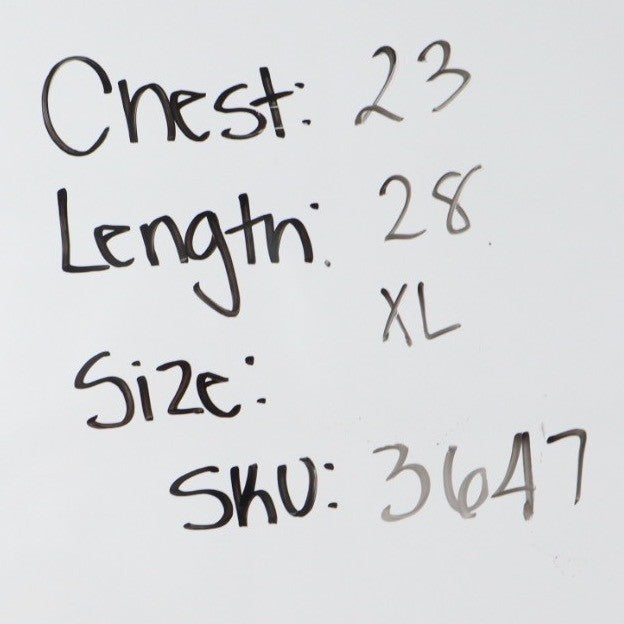 Chest: 23
Length: 28
XL
Size:
SKU: 3647